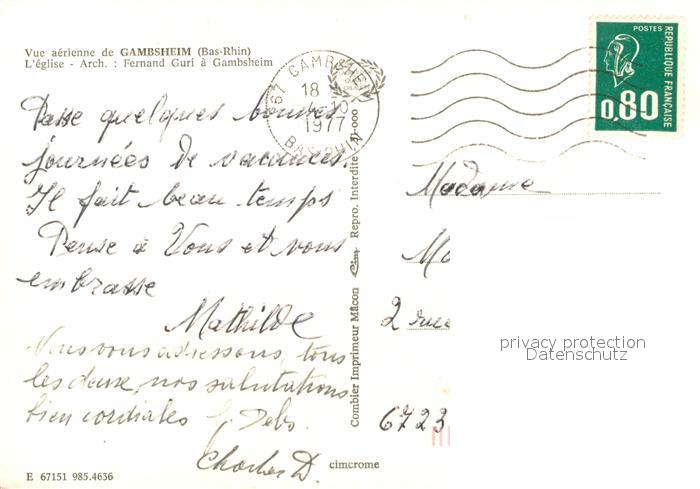 Vue aérienne de GAMBSHEIM (Bas-Rhin)
L'église - Arch. : Fernand Guri à Gambsheim
Passe quelques bonnes
journées de vacances.
Il fait beau temps
Pense à Vous et vous
embrasse
Mathilde
Nous vous adressons, tous
les deux, nos salutations
bien cordiales
Charles D.
E 67151 985.4636
cimcrome
Combier Imprimeur Mâcon Cim Repro. Interdite
67 GAMBSHEIM
18 H
10
1977
BAS-RHIN
POSTES
RÉPUBLIQUE FRANÇAISE
0,80
Madame
2 rue
6723
privacy protection
Datenschutz